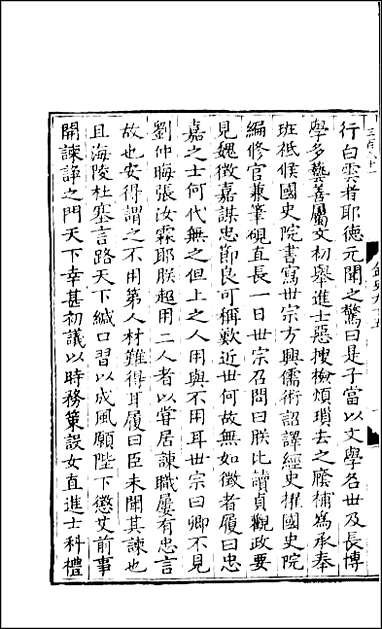 行白雲者耶德元聞之驚曰是子當以文學名世及長博
學多藝善屬文初舉進士惡搜檢煩瑣去之廕補爲承奉
班祗候國史院書寫世宗方興儒術詔譯經史擢國史院
編修官兼筆硯直長一日世宗召問曰朕比讀貞觀政要
見魏徵嘉謀忠節良可稱歎近世何故無如徵者履曰忠
嘉之士何代無之但上之人用與不用耳世宗曰卿不見
劉仲晦張汝霖耶朕超用二人者以嘗居諫職屢有忠言
故也安得謂之不用第人材難得耳履曰臣未聞其諫也
且海陵杜塞言路天下緘口習以成風願陛下懲艾前事
開諫諍之門天下幸甚初議以時務策設女直進士科禮